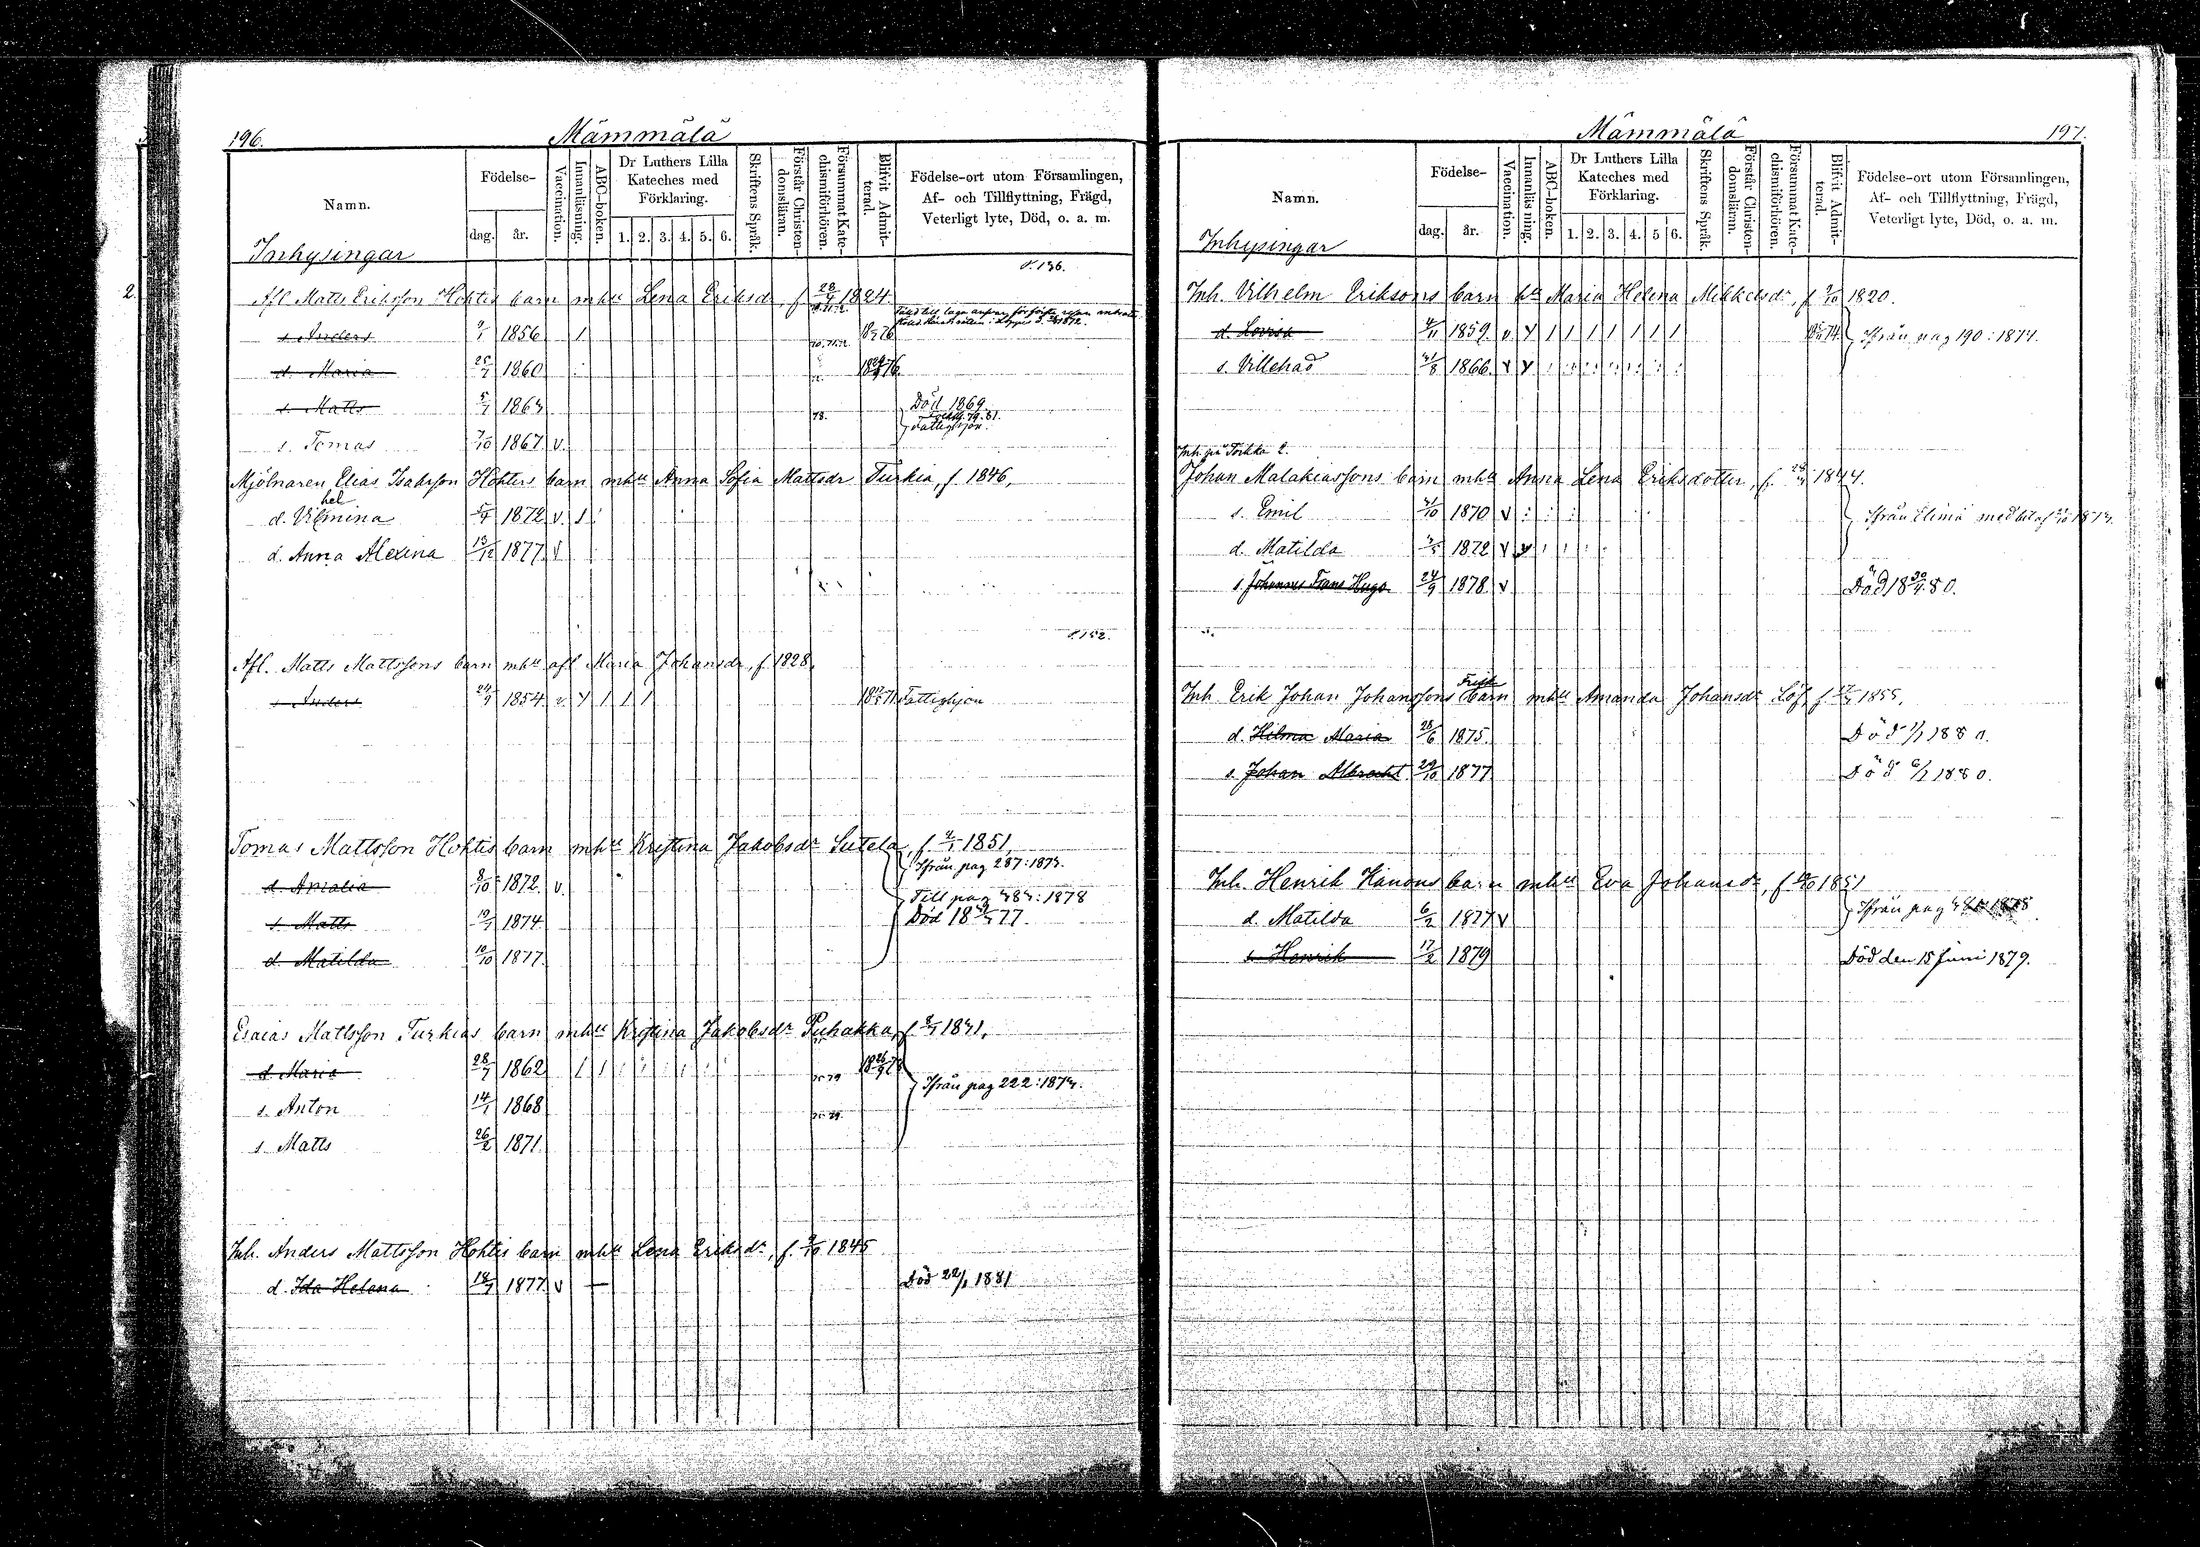 196. Mämmälä
Namn. Födelse- dag. år. Vaccination. Innanläsning. ABC-boken. Dr Luthers Lilla Kateches med Förklaring. 1. 2. 3. 4. 5. 6. Skriftens Språk. Förstår Christendomsläran. Försummat Katechismiförhören. Blifvit Admitterad. Födelse-ort utom Församlingen, Af- och Tillflyttning, Frägd, Veterligt lyte, Död, o. a. m.
Inhysingar
Afl. Matts Eriksson Hohtis barn mhu Lena Eriksdr, f 28/4 1824.
s. Anders 9/1 1856 1
d. Maria 25/7 1860
s. Matts 5/7 1863 Död 1869
s. Tomas 7/10 1867 v. Fattighjon.
Mjölnaren Elias Isaksson Hohtis barn mhu Anna Sofia Mattsdr Turkia, f. 1846,
hel
d. Vilmina 5/4 1872 v. 1
d. Anna Alexina 13/12 1877 v
Afl. Matts Mattssons barn mhu afl Maria Johansdr, f 1828,
s. Anders 24/9 1854 v. Y 1 1 1 Fattighjon
Tomas Mattsson Hohtis barn mhu Kristina Jakobsdr Sutela, f. 4/1 1851,
Ifrån pag 287:1873.
d. Amalia 8/10 1872 v.
Till pag 383:1878
s. Matts 19/1 1874 Död 77.
d. Matilda 10/10 1877
Esaias Mattsson Turkias barn mhu Kristina Jakobsdr Puhakka, f 8/7 1831,
d. Maria 28/7 1862 1 1
Ifrån pag 222:1873.
s. Anton 14/1 1868
s. Matts 26/2 1871
Inh. Anders Mattsson Hohtis barn mhu Lena Eriksdr, f. 9/10 1845
d. Ida Helena 18/7 1877 v — Död 22/1 1881
Mämmälä 197.
Namn. Födelse- dag. år. Vaccination. Innanläsning. ABC-boken. Dr Luthers Lilla Kateches med Förklaring. 1. 2. 3. 4. 5 6. Skriftens Språk. Förstår Christendomsläran. Försummat Katechismiförhören. Blifvit Admitterad. Födelse-ort utom Församlingen, Af- och Tillflyttning, Frägd, Veterligt lyte, Död, o. a. m.
Inhysingar
Inh. Vilhelm Eriksons barn hu Maria Helena Mikkelsdr, f 9/10 1820.
d. Lovisa 4/11 1859. v Y 1 1 1 1 1 1 1 Ifrån pag 190:1874.
s. Villehad 31/8 1866. Y Y
Johan Malakiassons barn mhu Anna Lena Eriksdotter, f. 1844.
s. Emil 31/10 1870 v Ifrån Elimä med bet af
d. Matilda 3/5 1872 Y Y
s. Johannes Frans Hugo 24/9 1878 v Död 18 30/4 80.
Inh. Erik Johan Johanssons barn mhu Amanda Johansdr Löf, f 1855,
d. Hilma Maria 28/6 1875. Död 1/1 1880.
s. Johan Albrecht 29/10 1877 Död 6/1 1880.
Inh. Henrik Hänons barn mhu Eva Johansdr, f 1851
d. Matilda 6/2 1877 v Ifrån pag
s. Henrik 17/2 1879 Död den 15 Juni 1879.